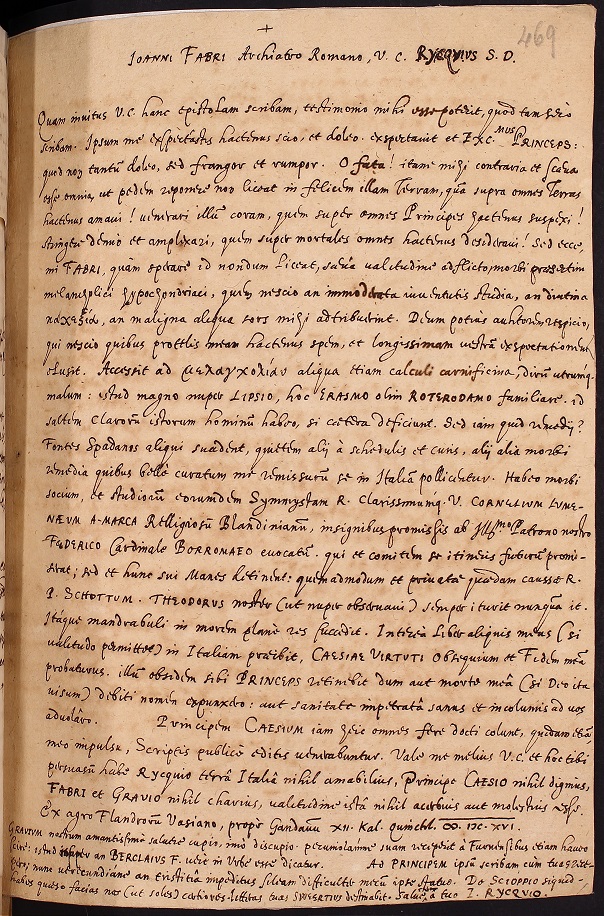 469
IOANNI FABRI Archiatro Romano, V. C. RYCQVIVS S. D.
Quam invitus V.C. hanc epistolam scribam, testimonio mihi esse poterit, quod tam sero
scribam. Ipsum me exspectastis hactenus scio, et doleo. exspectavit et EXC.MVS PRINCEPS:
quod non tantū doleo, sed frangor et rumpor. O fata! itane mihi contraria et scaeva
esse omnia, ut pedem reponere non liceat in felicem illam Terram, quā supra omnes Terras
hactenus amavi! venerari illū coram, quem super omnes Principes hactenus suspexi!
stringere denio et amplexari, quem super mortales omnes hactenus desideravi! Sed ecce,
mi FABRI, quām sperare id nondum liceat, saeva valitudine adflicto, morbi praesertim
melancholici hypochondriaci, quem nescio an immoderata iuventutis studia, an diutina
καχεξία, an maligna aliqua sors mihi adtribuerint. Deum potius auctorem respicio,
qui nescio quibus protelis meam hactenus spem, et longissimam vestrā exspectationem
elusit. Accessit ad μελαγχολίαν aliqua etiam calculi carnificina, dirū utrumq.
malum: istud magno nuper LIPSIO, hoc ERASMO olim ROTERODAMO familiare. id
saltem clarorū istorum hominū habeo, si cetera deficiunt. Sed iam quid remedij?
Fontes Spadanos aliqui suadent, quietem alij à schedulis et curis, alij alia morbi
remedia quibus bellè curatum me remissurū se in Italiā pollicentur. Habeo morbi
socium, et studiorū eorumdem Symmystam R. Clarissimumq. V. CORNELIVM LVME-
NAEVM A-MARCA Relligiosū Blandinianū, insignibus promissis ab Illmo Patrono nostro
FEDERICO Cardinale BORROMAEO evocatū. qui et comitem se itineris futurū promi-
serat; sed et hunc sui Manes detinent: quemadmodum et privatae quaedam caussae R.
P. SCHOTTVM. THEODORVS noster (ut nuper observavi) semper iturit nunquā it.
Itaque mandrabuli in morem planè res succedit. Interea Liber aliquis meus (si
valitudo permittet) in Italiam praeibit, CAESIAE VIRTVTI Obsequium et Fidem meā
probaturus. illū obsidem sibi PRINCEPS retinebit dum aut morte meâ (si Deo ita
visum) debiti nomen expunxero; aut sanitate impetratâ sanus et incolumis ad vos
advolâro. Principem CAESIVM iam heic omnes fere docti colunt, quidam etiā,
meo impulsu, Scriptis publicè editis venerabuntur. Vale me melius V.C. et hoc tibi
persuasū habe RYCQVIO terrâ Italiâ nihil amabilius, Principe CAESIO nihil dignius,
FABRI et GRAVIO nihil charius, valitudine istâ nihil acerbius aut molestius esse.
Ex agro Flandrorū Vasiano, propè Gandavū XII. Kal. Quinctil. CIↃ. IↃC. XVI.
GRAVIVM nostrum amantissimè salute cupio, imò discupio. pecuniolamne suam receperit à Furnensibus etiam haveo
scire: istud an BERCLAIVS F. uti in Urbe esse dicatur. Ad PRINCIPEM ipsū scribam cum
nunc verecundiane an tristitiâ impeditus sileam difficulter mecū ipse statuo. De SCIOPPIO siquid
habes quaeso facias nos (ut soles) certiores. litteras tuas SWEERTIVS destinabit. Salve. à tuo I. RYCQVIO.